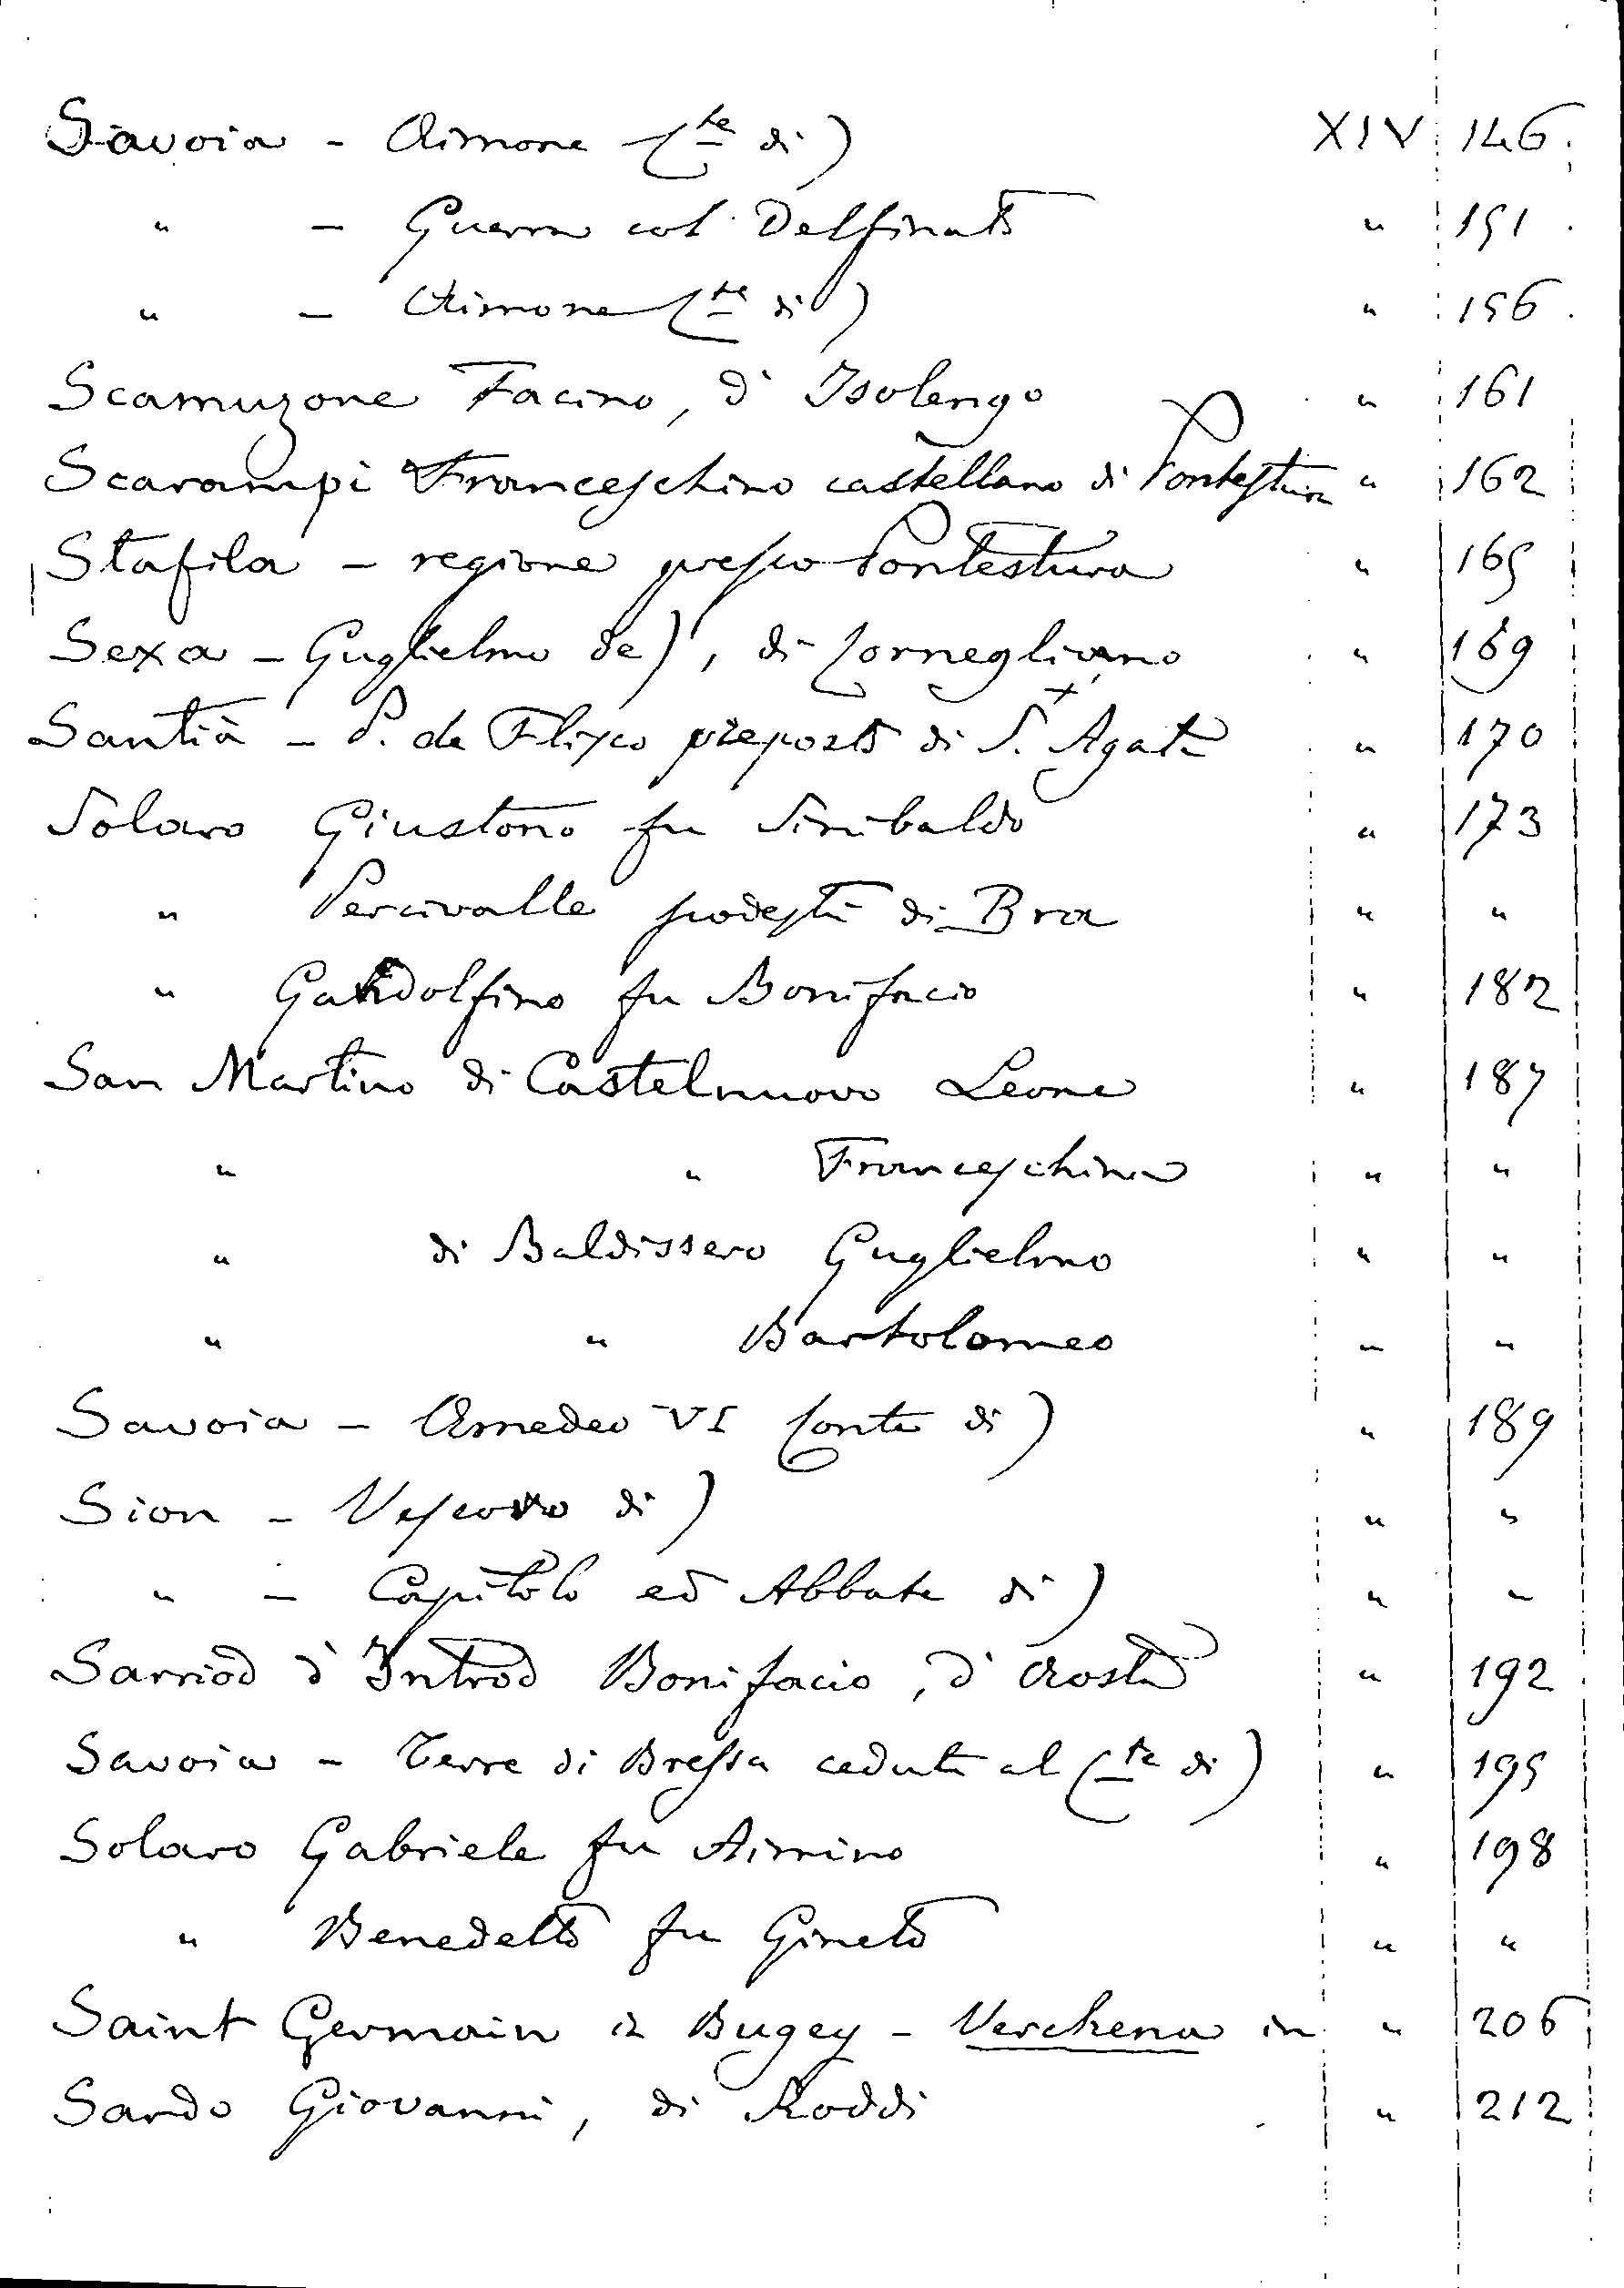 Savoia - Aimone C.te di) XIV 146
" - Guerra col Delfinato " 151
" - Aimone C.te di) " 156
Scamuzone Facino, d'Isolengo " 161
Scarampi Franceschino castellano di Pontestura " 162
Stafila - regione presso Pontestura " 165
Sexa - Guglielmo de), di Cornegliano " 169
Santià - P. de Flisco preposto di S. Agata " 170
Solaro Giustono fu Sinibaldo " 173
" Percivalle podestà di Bra " "
" Gandolfino fu Bonifacio " 182
San Martino di Castelnuovo Leone " 187
" " Franceschino " "
" di Baldissero Guglielmo " "
" " Bartolomeo " "
Savoia - Amedeo VI Conte di) " 189
Sion - Vescovo di) " "
" - Capitolo ed Abbate di) " "
Sarriod d'Introd Bonifacio, d'Aosta " 192
Savoia - Terre di Bressa cedute al C.te di) " 195
Solaro Gabriele fu Aimino " 198
" Benedetto fu Gineto " "
Saint Germain in Bugey - Verchena in " 206
Sardo Giovanni, di Roddi " 212